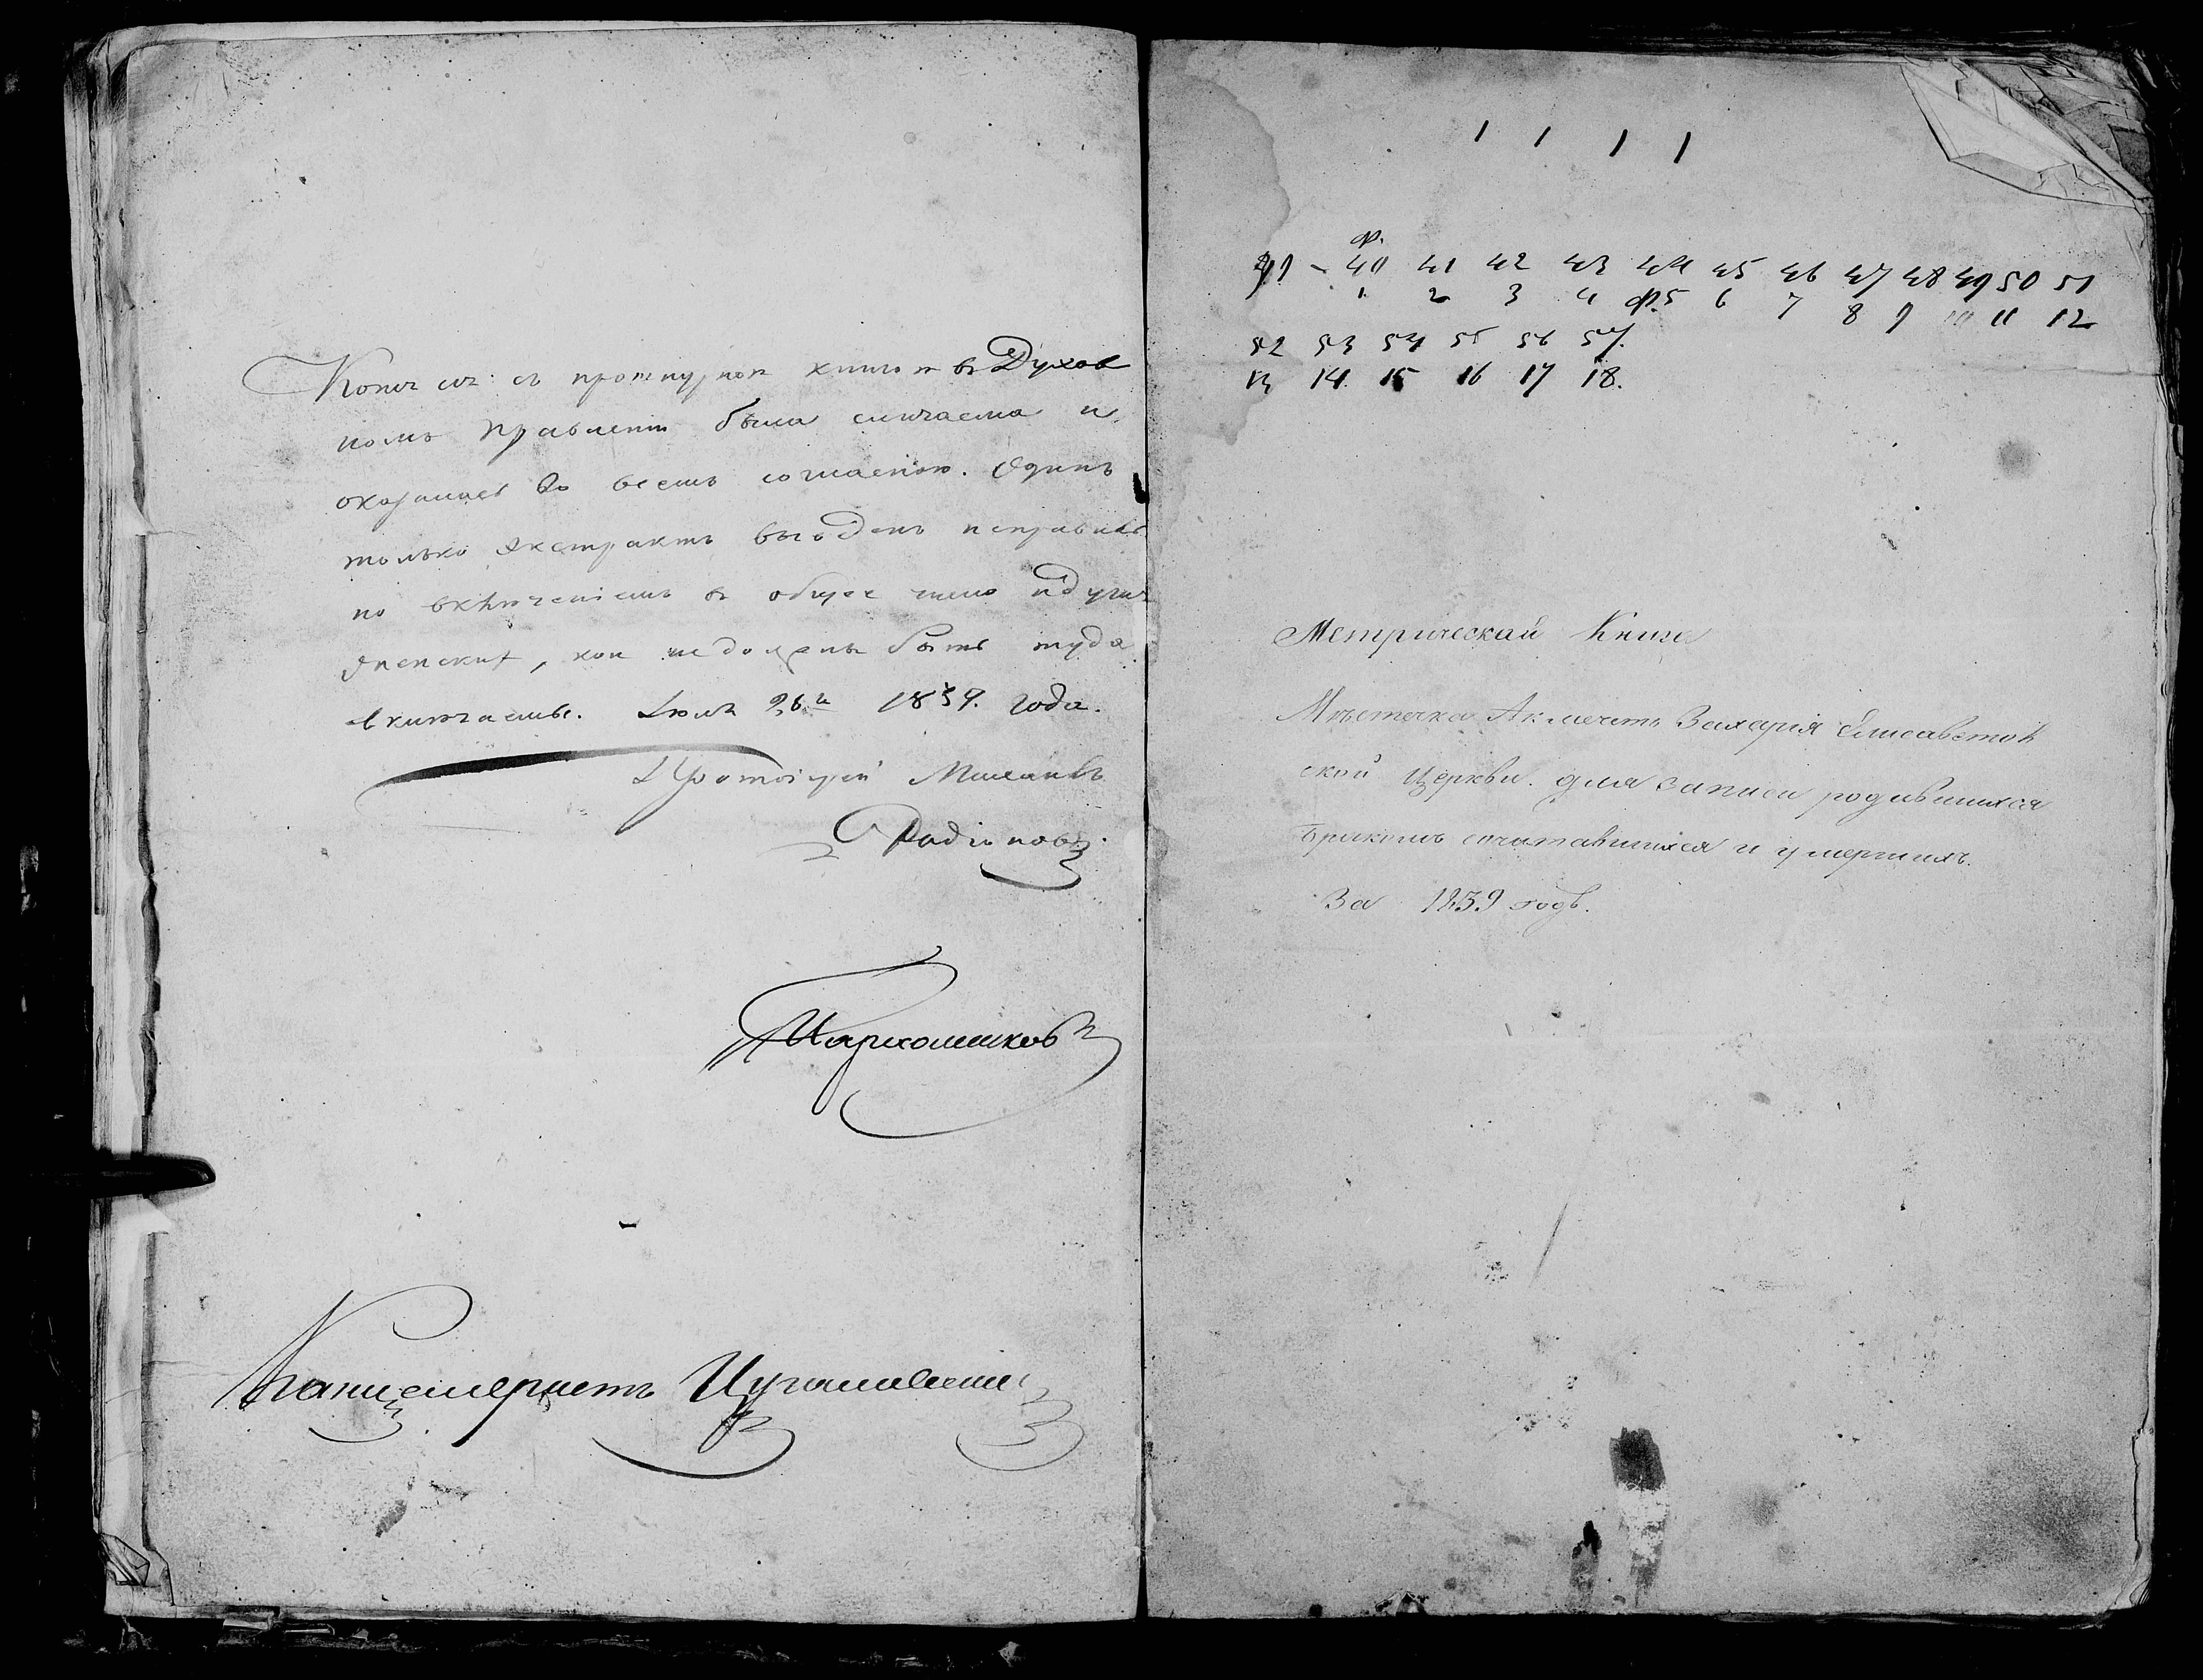 Копія сія съ протнурною книгою въ Духов
номъ Правленіи была сличаема и
оказалась во всемъ согласною. Одинъ
только Экстрактъ выведенъ неправиль
но включеніемъ въ общее число и другихъ
, кои не должны быть туда
включаемы. Іюля 26го 1839. года.
Протоіерей Михаилъ
Родіоновъ.
Пархоменковъ
Канцеляристъ
1 1 1 1
ф.
40 41 42 43 44 45 46 47 48 49 50 51
1 2 3 4 ф.5 6 7 8 9 10 11 12
52 53 54 55 56 57.
13 14. 15 16 17 18.
Метрическая Книга
Мѣстечка Акмечеть Захарія Елисаветов
ской Церкви. для записи родившихся
бракомъ сочитавшихся и умершихъ.
За 1839 годъ.